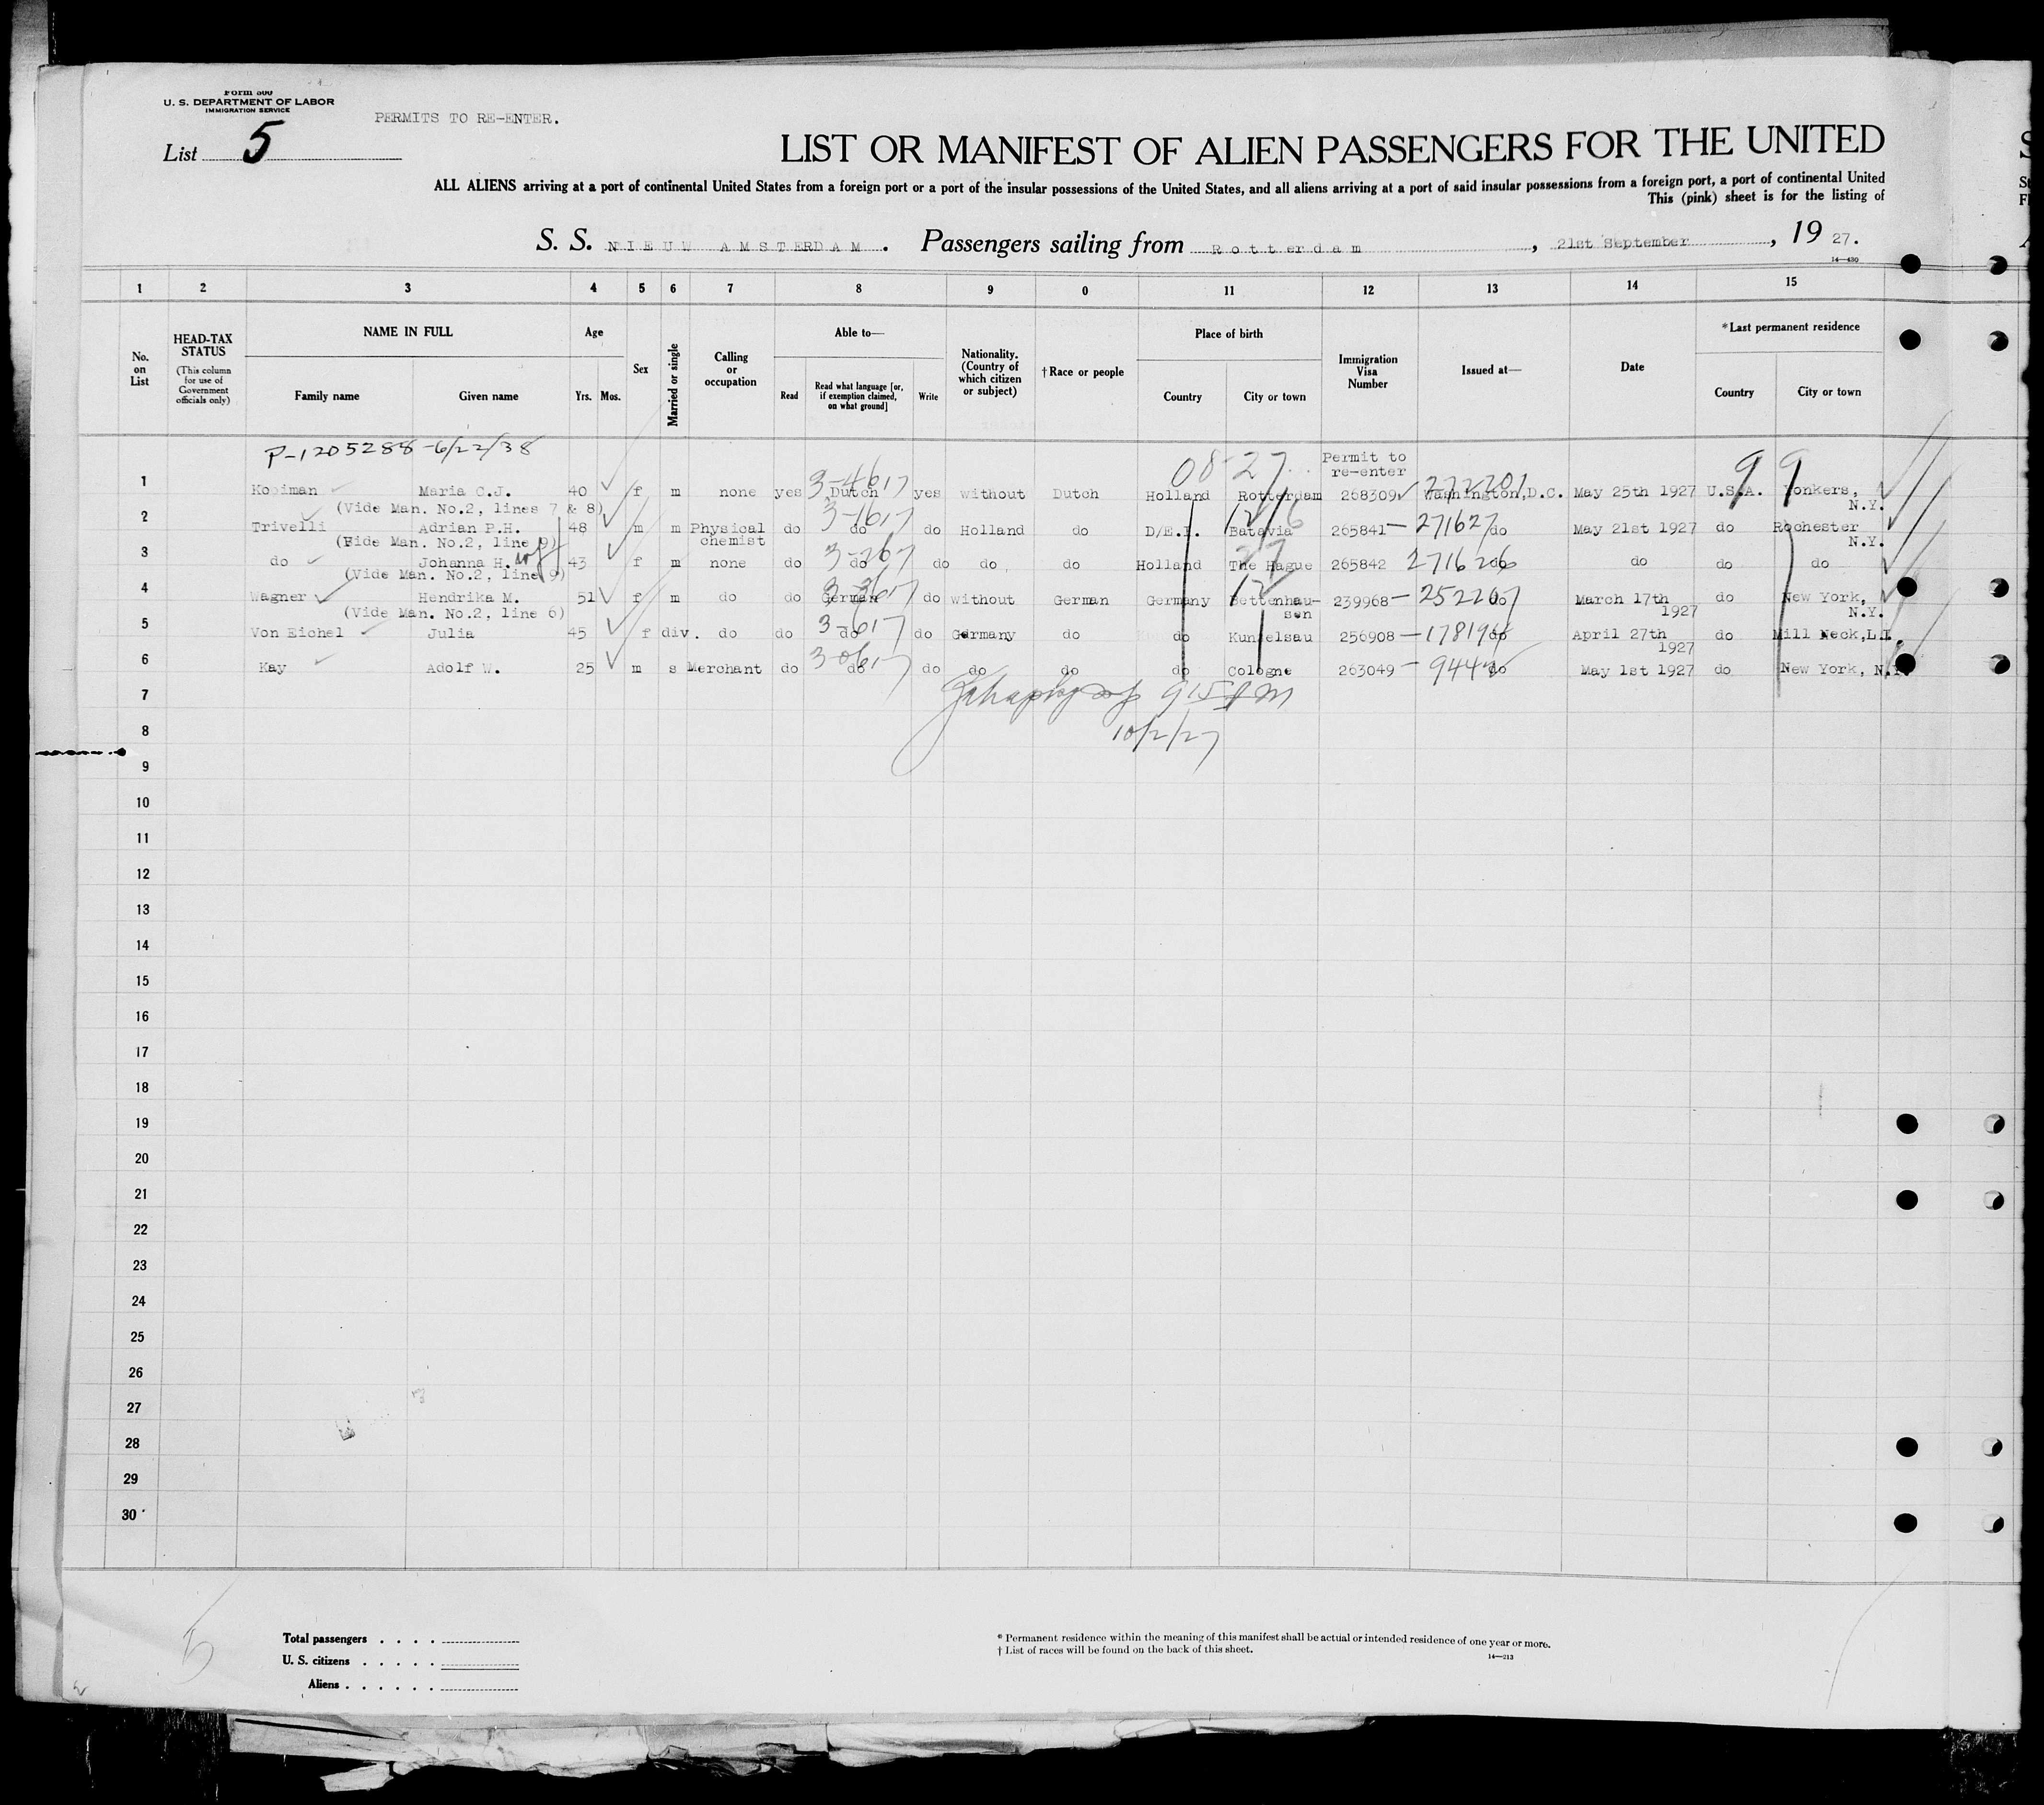 Form 500
U. S. DEPARTMENT OF LABOR
IMMIGRATION SERVICE
PERMITS TO RE-ENTER.
List 5
LIST OR MANIFEST OF ALIEN PASSENGERS FOR THE UNITED
ALL ALIENS arriving at a port of continental United States from a foreign port or a port of the insular possessions of the United States, and all aliens arriving at a port of said insular possessions from a foreign port, a port of continental United
This (pink) sheet is for the listing of
S. S. NIEUW AMSTERDAM. Passengers sailing from Rotterdam, 21st September, 19 27.
14—430
1 2 3 4 5 6 7 8 9 0 11 12 13 14 15
No. on List
HEAD-TAX STATUS
(This column for use of Government officials only)
NAME IN FULL
Family name Given name
Age
Yrs. Mos.
Sex
Married or single
Calling or occupation
Able to—
Read
Read what language [or, if exemption claimed, on what ground]
Write
Nationality. (Country of which citizen or subject)
† Race or people
Place of birth
Country City or town
Immigration Visa Number
Issued at—
Date
* Last permanent residence
Country City or town
P-1205288-6/22/38
08-27
Permit to re-enter
9 9
1 Kooiman Maria C.J. 40 f m none yes 3-4617 Dutch yes without Dutch Holland Rotterdam 268309 272201 Washington, D.C. May 25th 1927 U.S.A. Yonkers, N.Y.
(Vide Man. No.2, lines 7 & 8)
2 Trivelli Adrian P.H. 48 m m Physical chemist do 3-1617 do do Holland do D/E.I. Batavia 265841 — 271627 do May 21st 1927 do Rochester N.Y.
(Vide Man. No.2, line 9)
3 do Johanna H. wf 43 f m none do do do do, do Holland The Hague 265842 271626 do do do do
(Vide Man. No.2, line 9)
4 Wagner Hendrika M. 51 f m do do German do without German Germany Bettenhausen 239968 — 252207 do March 17th 1927 do New York, N.Y.
(Vide Man. No.2, line 6)
5 Von Eichel Julia 45 f div. do do 3-617 do do Germany do do Kunzelsau 256908 — 178194 do April 27th 1927 do Mill Neck, L.I.
6 Kay Adolf W. 25 m s Merchant do 3-0617 do do do do do Cologne 263049 — do May 1st 1927 do New York, N.Y.
7
915 AM
8
10/2/27
9
10
11
12
13
14
15
16
17
18
19
20
21
22
23
24
25
26
27
28
29
30
5
Total passengers . . . .
U. S. citizens . . . . .
Aliens . . . . . .
* Permanent residence within the meaning of this manifest shall be actual or intended residence of one year or more.
† List of races will be found on the back of this sheet.
14—213